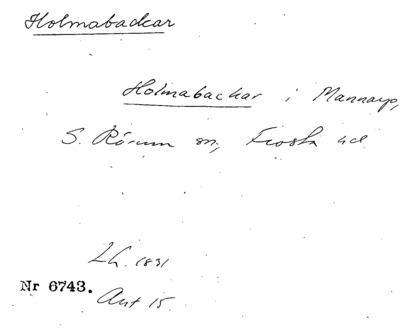 Holmabackar
Holmabackar i Mannarp,
S. Rörum sn, Frosta hd
LK. 1831
Nr 6743.
Akt 15.